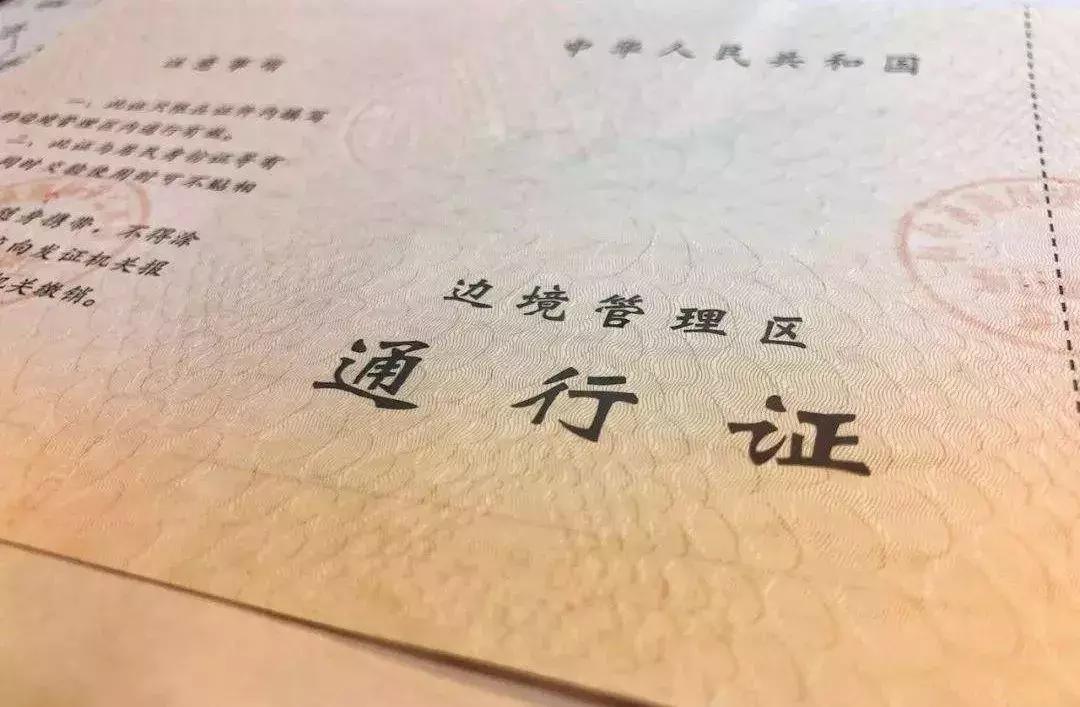 注意事项
一、此证只限在证件内填写
的边境管理区内通行有效。
二、此证与居民身份证等有
同时交验使用时可不贴相
身携带，不得涂
向发证机关报
机关缴销。
中华人民共和国
边境管理区
通行证